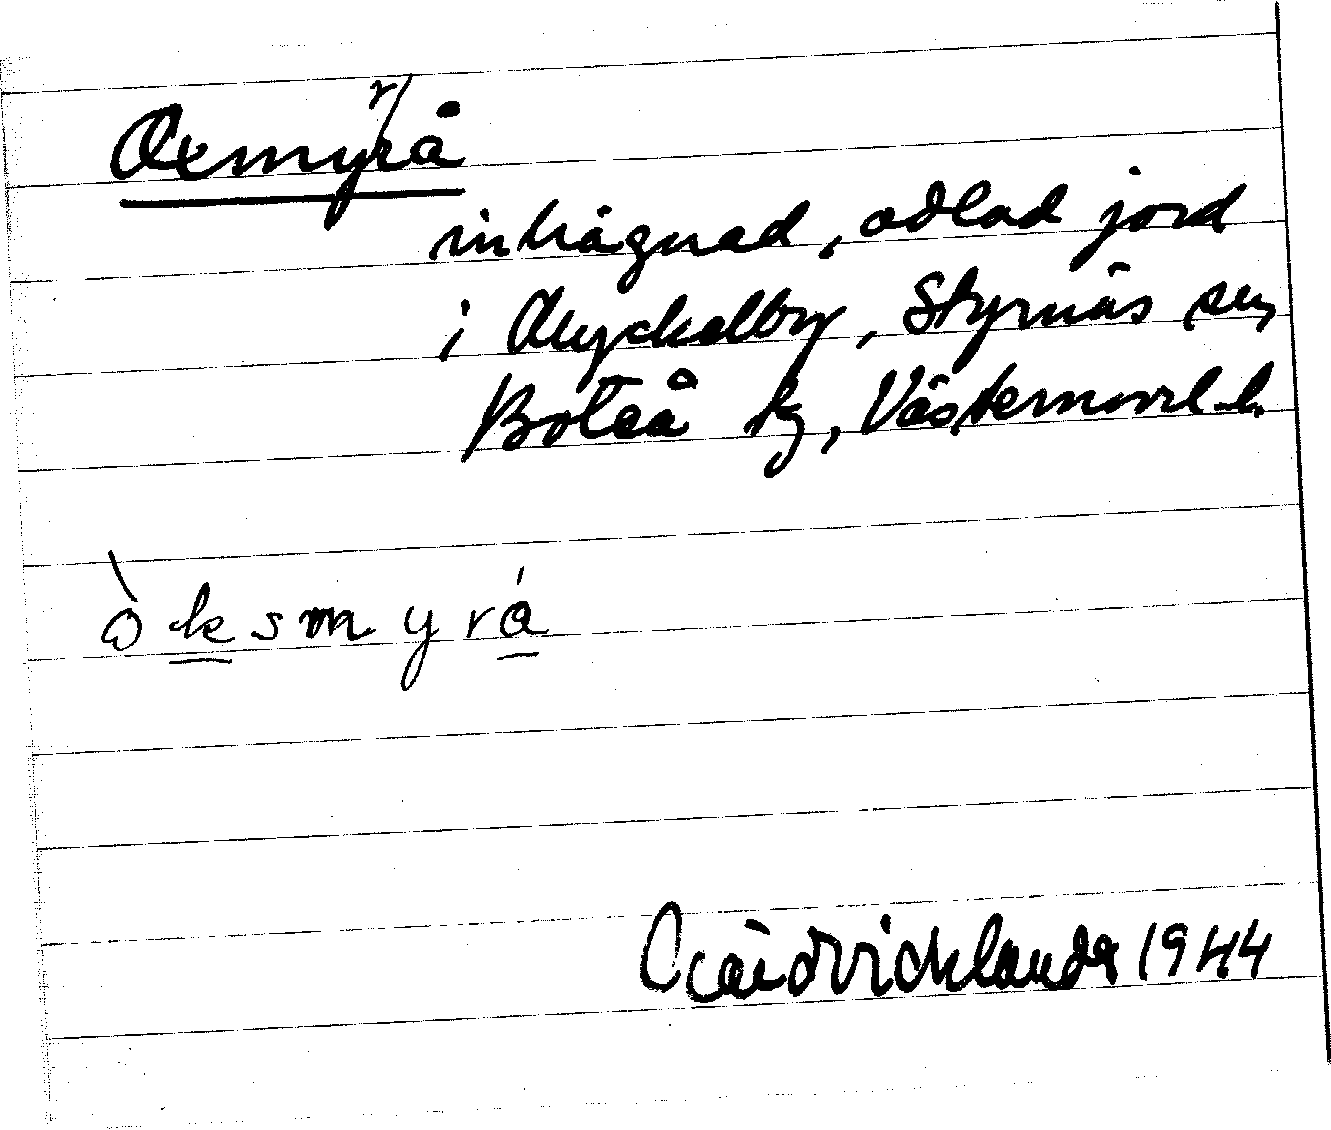 Oxmyrrå
inhägnad, odlad jord
i Myckelby, Styrnäs sn,
Boteå tg, Västernorrl.l.
òksmyrá
1944